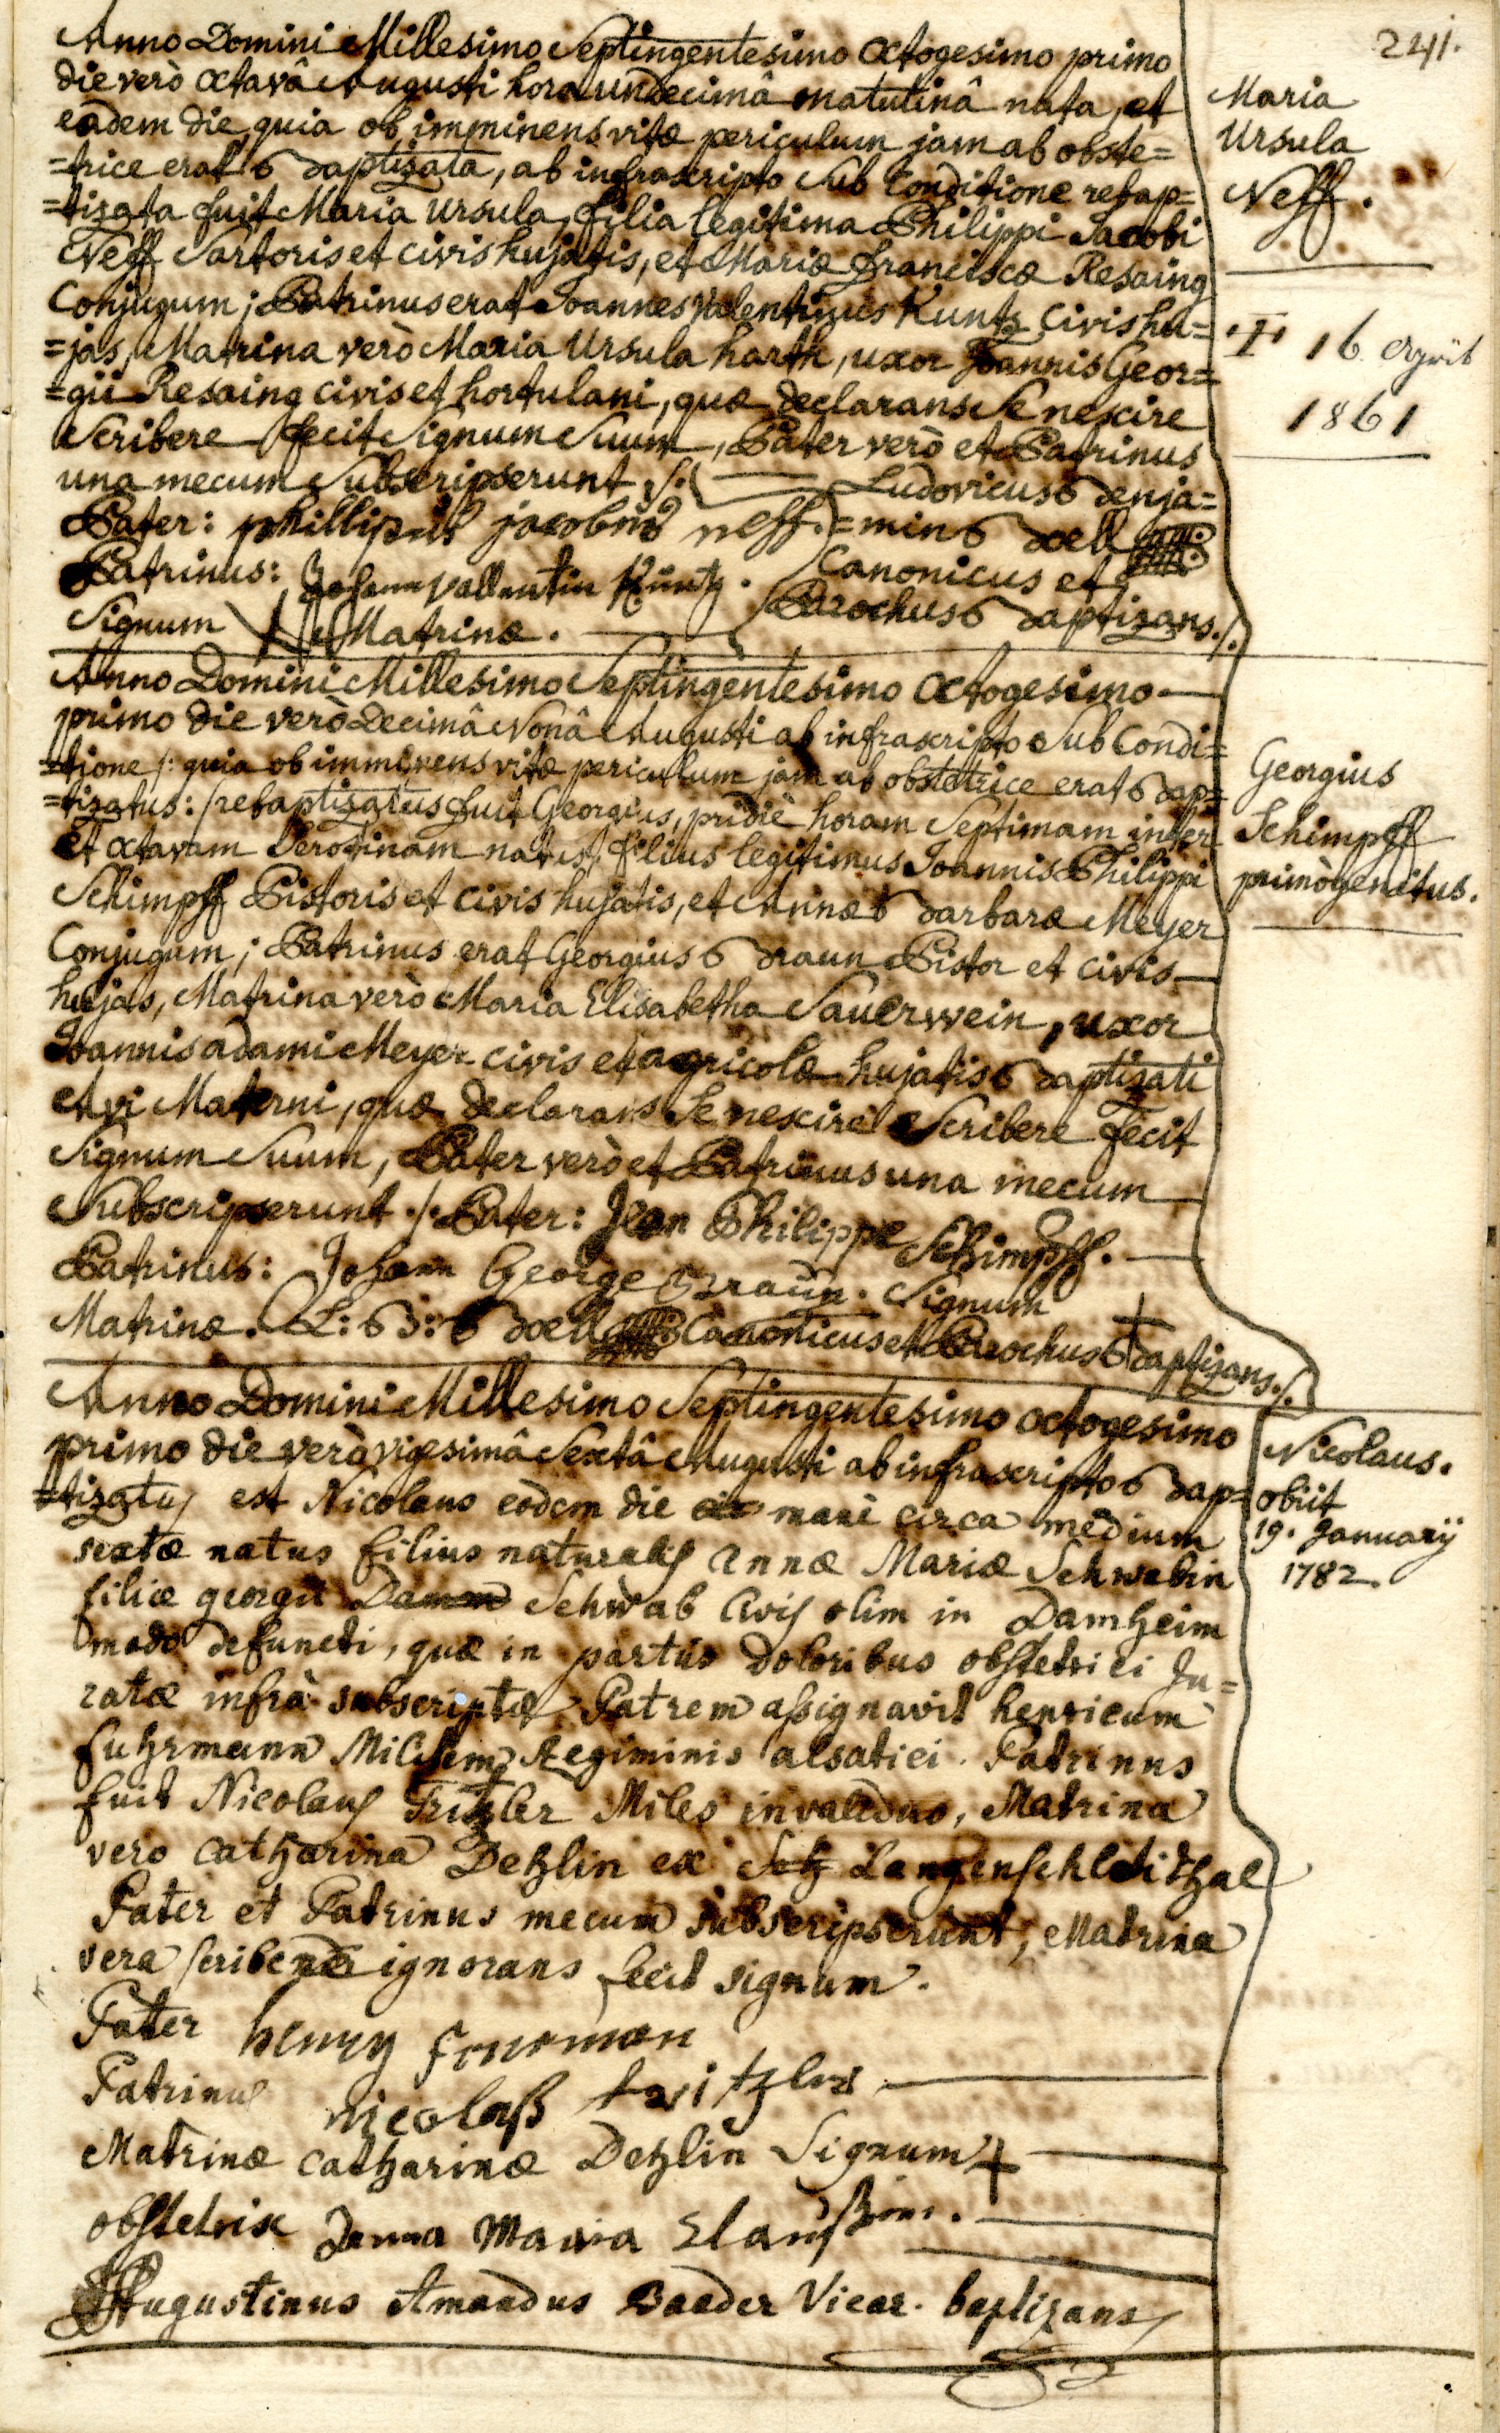 241.
Anno Domini Millesimo Septingentesimo Octogesimo primo
die verò Octavâ Augusti hora undecimâ matutinâ nata, et
eâdem die, quia ob imminens vitæ periculum jam ab obste=
=trice erat Baptizata, ab infrascripto sub Conditione rebap=
=tizata fuit Maria Ursula, filia legitima Philippi Jacobi
Neff Sartoris et civis hujatis, et Mariæ Franciscæ Resaing
Conjugum; Patrinus erat Joannes Valentinus Kuntz Civis hu=
=jas, Matrina verò Maria Ursula harth, uxor Joannis Geor=
=gii Resaing civis et hortulani, quæ declarans se nescire
Scribere fecit Signum Suum, Pater verò et Patrinus
una mecum Subscripserunt ./. Ludovicus Benja=
Pater: phillipus jacobus neff. =min Boell
Patrinus: Johann Vallentin Küntz. Canonicus et
Signum Matrinæ. Parochus Baptizans./.
Maria
Ursula
Neff.
† 16
1861
Anno Domini Millesimo Septingentesimo Octogesimo
primo die verò Decimâ Nonâ Augusti ab infrascripto sub Condi=
=tione /: quia ob imminens vitæ periculum jam ab obstetrice erat Bap=
=tizatus :/ rebaptizatus fuit Georgius, pridiè horam Septimam inter
et Octavam Serotinam natus, filius legitimus Joannis Philippi
Schimpff Pistoris et civis hujatis, et Annæ Barbaræ Meyer
Conjugum; Patrinus erat Georgius Braun Pistor et civis
hujas, Matrina verò Maria Elisabetha Sauerwein, uxor
Joannis adami Meyer civis et agricolæ hujatis Baptizati
Avi Materni, quæ declarans se nescire Scribere fecit
Signum Suum, Pater verò et Patrinus una mecum
Subscripserunt ./. Pater: Jean Philippe Schimpff.
Patrinus: Johann George Braun. Signum †
Matrinæ. L: B: Boell Canonicus et Parochus Baptizans./.
Georgius
Schimpff
primògenitus.
Anno Domini Millesimo Septingentesimo octogesimo
primo die verò vigesimâ Sextâ Augusti ab infrascripto Bap=
=tizatus est Nicolaus eodem die mane circa medium
sextæ natus filius naturalis Annæ Mariæ Schwabin
filiæ georgii Schwab Civis olim in Damheim
modo defuncti, quæ in partus doloribus obstetrici Ju=
ratæ infrà subscriptæ Patrem assignavit henricum
fuhrmann Militem Regiminis alsatici. Patrinus
fuit Nicolaus Fritzler Miles invalidus, Matrina
vero Catharina Detzlin ex Langenschleithal
Pater et Patrinus mecum subscripserunt, Matrina
vera scribere ignorans fecit signum.
Pater henry fourman
Patrinus nicolaß fritzler
Matrinæ Catharinæ Detzlin Signum +
obstetrix Anna Maria
Augustinus Amandus Baader Vicar. baptizans
Nicolaus.
obiit
19. Januarÿ
1782.